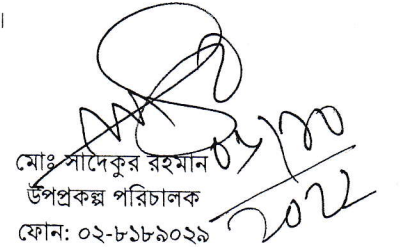 ।
মোঃ সাদেকুর রহমান
উপপ্রকল্প পরিচালক
ফোন: ০২-৮১৮৯০২৯